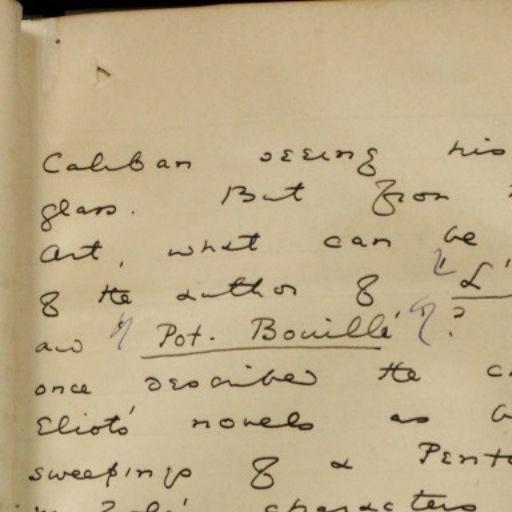 Caliban seeing his
glass. But from
Art, what can be
of the author of "L'
and "Pot. Bouille" ?
once described the
Eliot's novels as
sweepings of a Pent
in Zola's characters